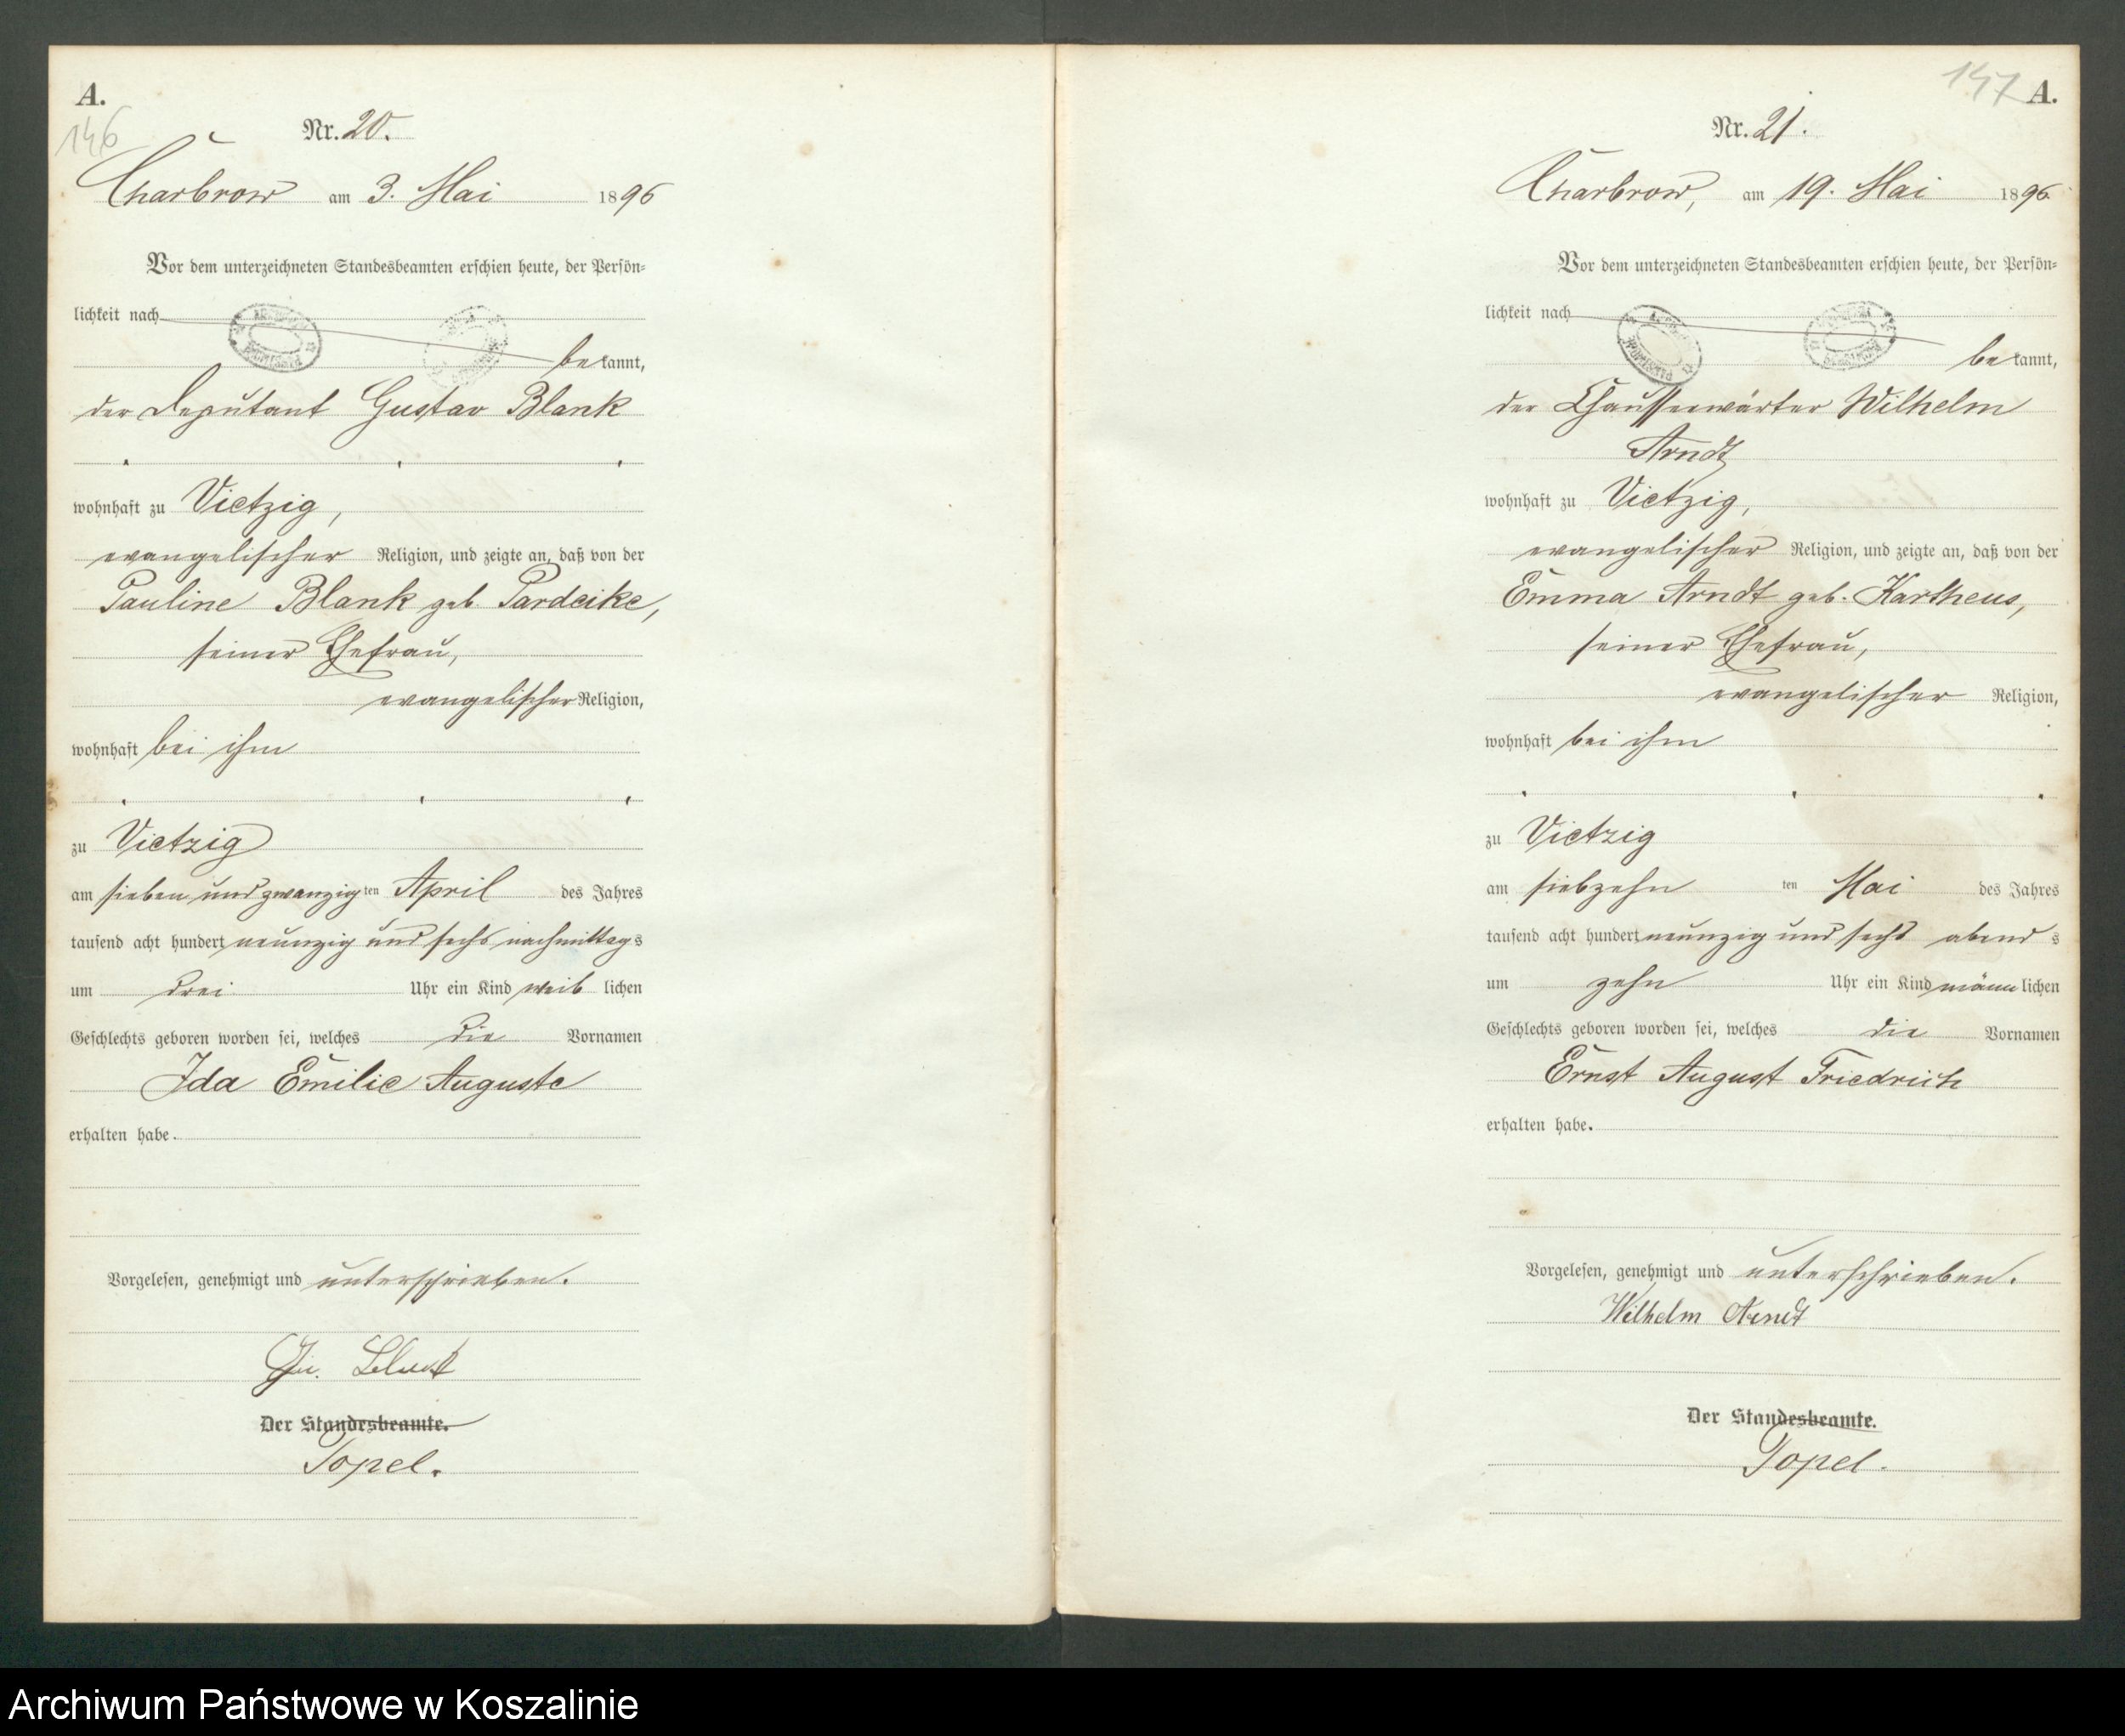 A.
146
Nr. 20.
Charbrow am 3. Mai 1896
Vor dem unterzeichneten Standesbeamten erschien heute, der Persön=
lichkeit nach
bekannt,
der Deputant Gustav Blank
wohnhaft zu Vietzig,
evangelischer Religion, und zeigte an, daß von der
Pauline Blank geb. Pardeike,
seiner Ehefrau,
evangelischer Religion,
wohnhaft bei ihm
zu Vietzig
am sieben und zwanzigten April des Jahres
tausend acht hundert neunzig und sechs nachmittags
um drei Uhr ein Kind weiblichen
Geschlechts geboren worden sei, welches die Vornamen
Ida Emilie Auguste
erhalten habe.
Vorgelesen, genehmigt und unterschrieben.
Der Standesbeamte.
Topel.
147 A.
Nr. 21.
Charbrow, am 19. Mai 1896
Vor dem unterzeichneten Standesbeamten erschien heute, der Persön=
lichkeit nach
bekannt,
der Chausseewärter Wilhelm
Arndt
wohnhaft zu Vietzig,
evangelischer Religion, und zeigte an, daß von der
Emma Arndt geb. Kartheus,
seiner Ehefrau,
evangelischer Religion,
wohnhaft bei ihm
zu Vietzig
am siebzehnten Mai des Jahres
tausend acht hundert neunzig und sechs abends
um zehn Uhr ein Kind männlichen
Geschlechts geboren worden sei, welches die Vornamen
Ernst August Friedrich
erhalten habe.
Vorgelesen, genehmigt und unterschrieben.
Wilhelm Arndt
Der Standesbeamte.
Topel.
Archiwum Państwowe w Koszalinie